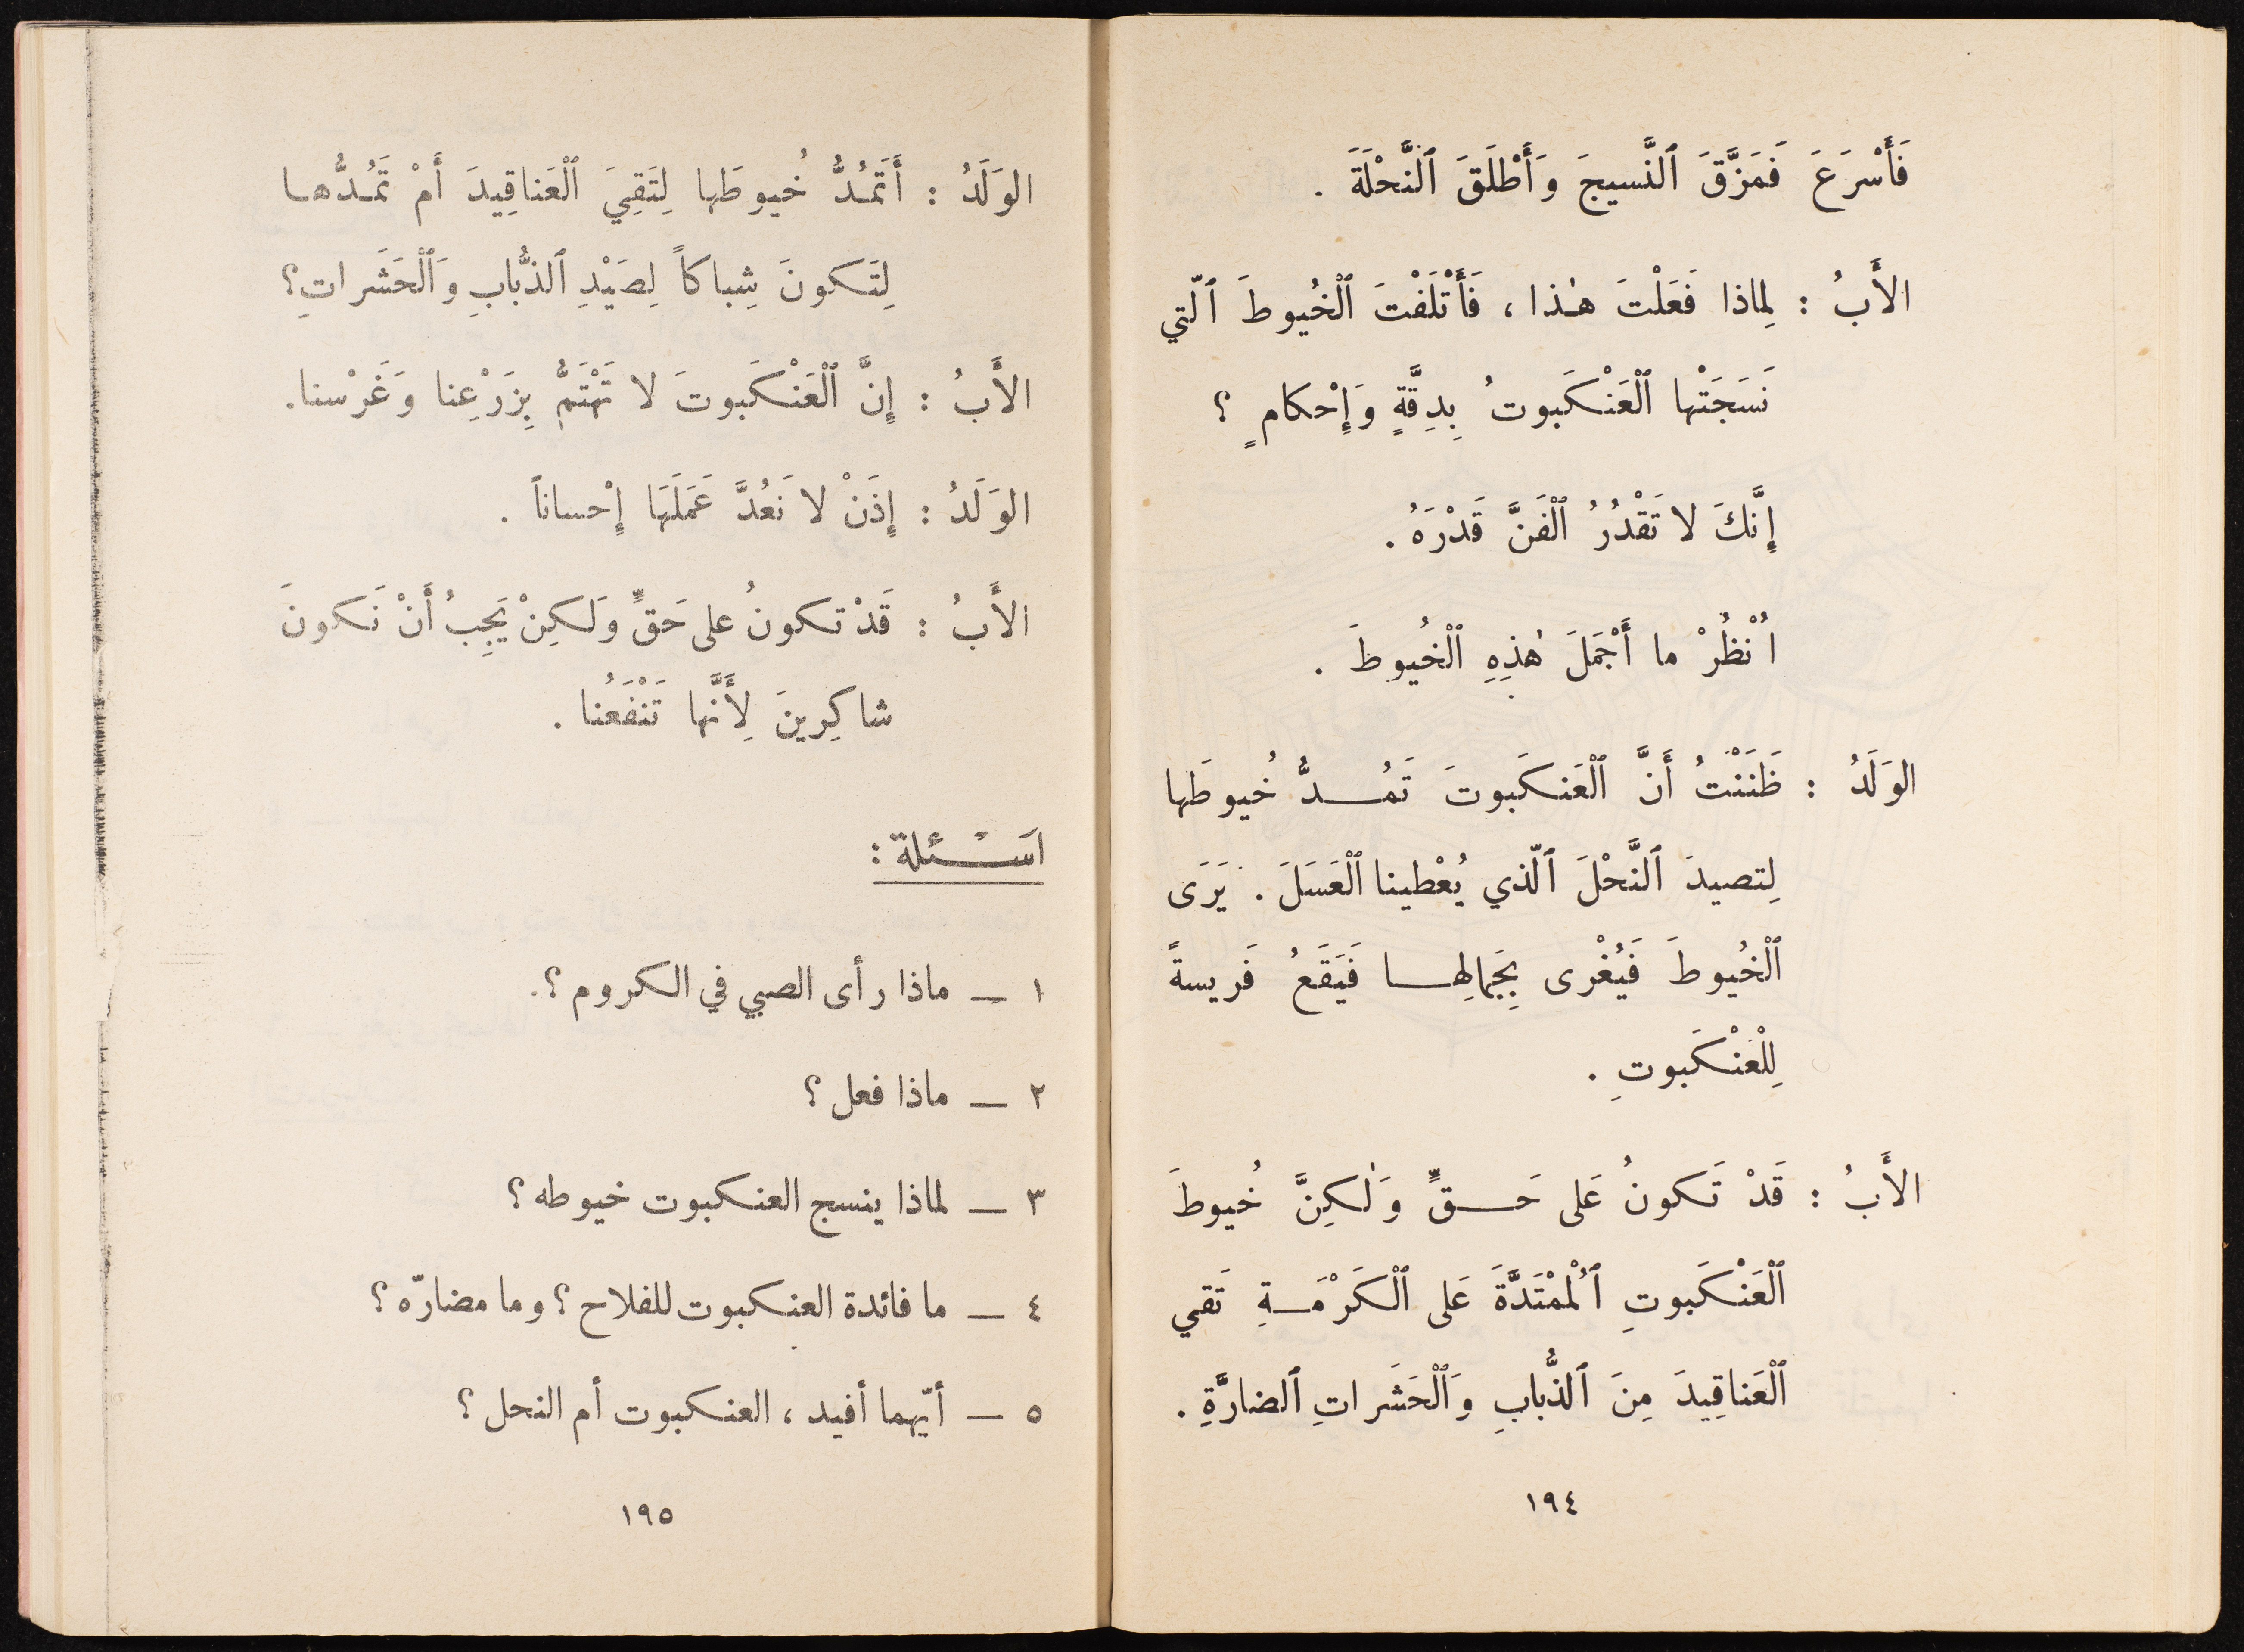 فَأَسْرَعَ فَمَزَّقَ ٱلنَّسيجَ وَأَطْلَقَ ٱلنَّحْلَةَ .
الأَبُ : لِماذا فَعَلْتَ هٰذا ، فَأَتْلَفْتَ ٱلْخُيوطَ ٱلّتي
نَسَجَتْها ٱلْعَنْكَبوتُ بِدِقَّةٍ وَإِحْكامٍ ؟
إِنَّكَ لا تَقْدُرُ ٱلْفَنَّ قَدْرَهُ .
اُنْظُرْ ما أَجْمَلَ هٰذِهِ ٱلْخُيوطَ .
الوَلَدُ : ظَنَنْتُ أَنَّ ٱلْعَنكَبوتَ تَمُدُّ خُيوطَها
لِتصيدَ ٱلنَّحْلَ ٱلّذي يُعْطينا ٱلْعَسَلَ . يَرَى
ٱلْخُيوطَ فَيُغْرى بِجَمالِها فَيَقَعُ فَريسةً
لِلْعَنْكَبوتِ .
الأَبُ : قَدْ تَكونُ عَلى حَقٍّ وَلٰكِنَّ خُيوطَ
ٱلْعَنْكَبوتِ ٱلْمُمْتَدَّةَ عَلى ٱلْكَرْمَةِ تَقي
ٱلْعَناقِيدَ مِنَ ٱلذُّبابِ وَٱلْحَشَراتِ ٱلضارَّةِ .
١٩٤
الوَلَدُ : أَتَمُدُّ خُيوطَها لِتَقِيَ ٱلْعَناقِيدَ أَمْ تَمُدُّها
لِتَكونَ شِباكاً لِصَيْدِ ٱلذُّبابِ وَٱلْحَشَراتِ؟
الأَبُ : إِنَّ ٱلْعَنْكَبوتَ لا تَهْتَمُّ بِزَرْعِنا وَغَرْسنا.
الوَلَدُ : إِذَنْ لا نَعُدَّ عَمَلَهَا إِحْساناً .
الأَبُ : قَدْ تكونُ على حَقٍّ وَلكِنْ يَجِبُ أَنْ نَكونَ
شاكِرِينَ لِأَنَّها تَنْفَعُنا .
اَسْئلة :
١ — ماذا رأى الصبي في الكروم ؟.
٢ — ماذا فعل ؟
٣ — لماذا ينسج العنكبوت خيوطه ؟
٤ — ما فائدة العنكبوت للفلاح ؟ وما مضارّه ؟
٥ — أيّهما أفيد ، العنكبوت أم النحل ؟
١٩٥